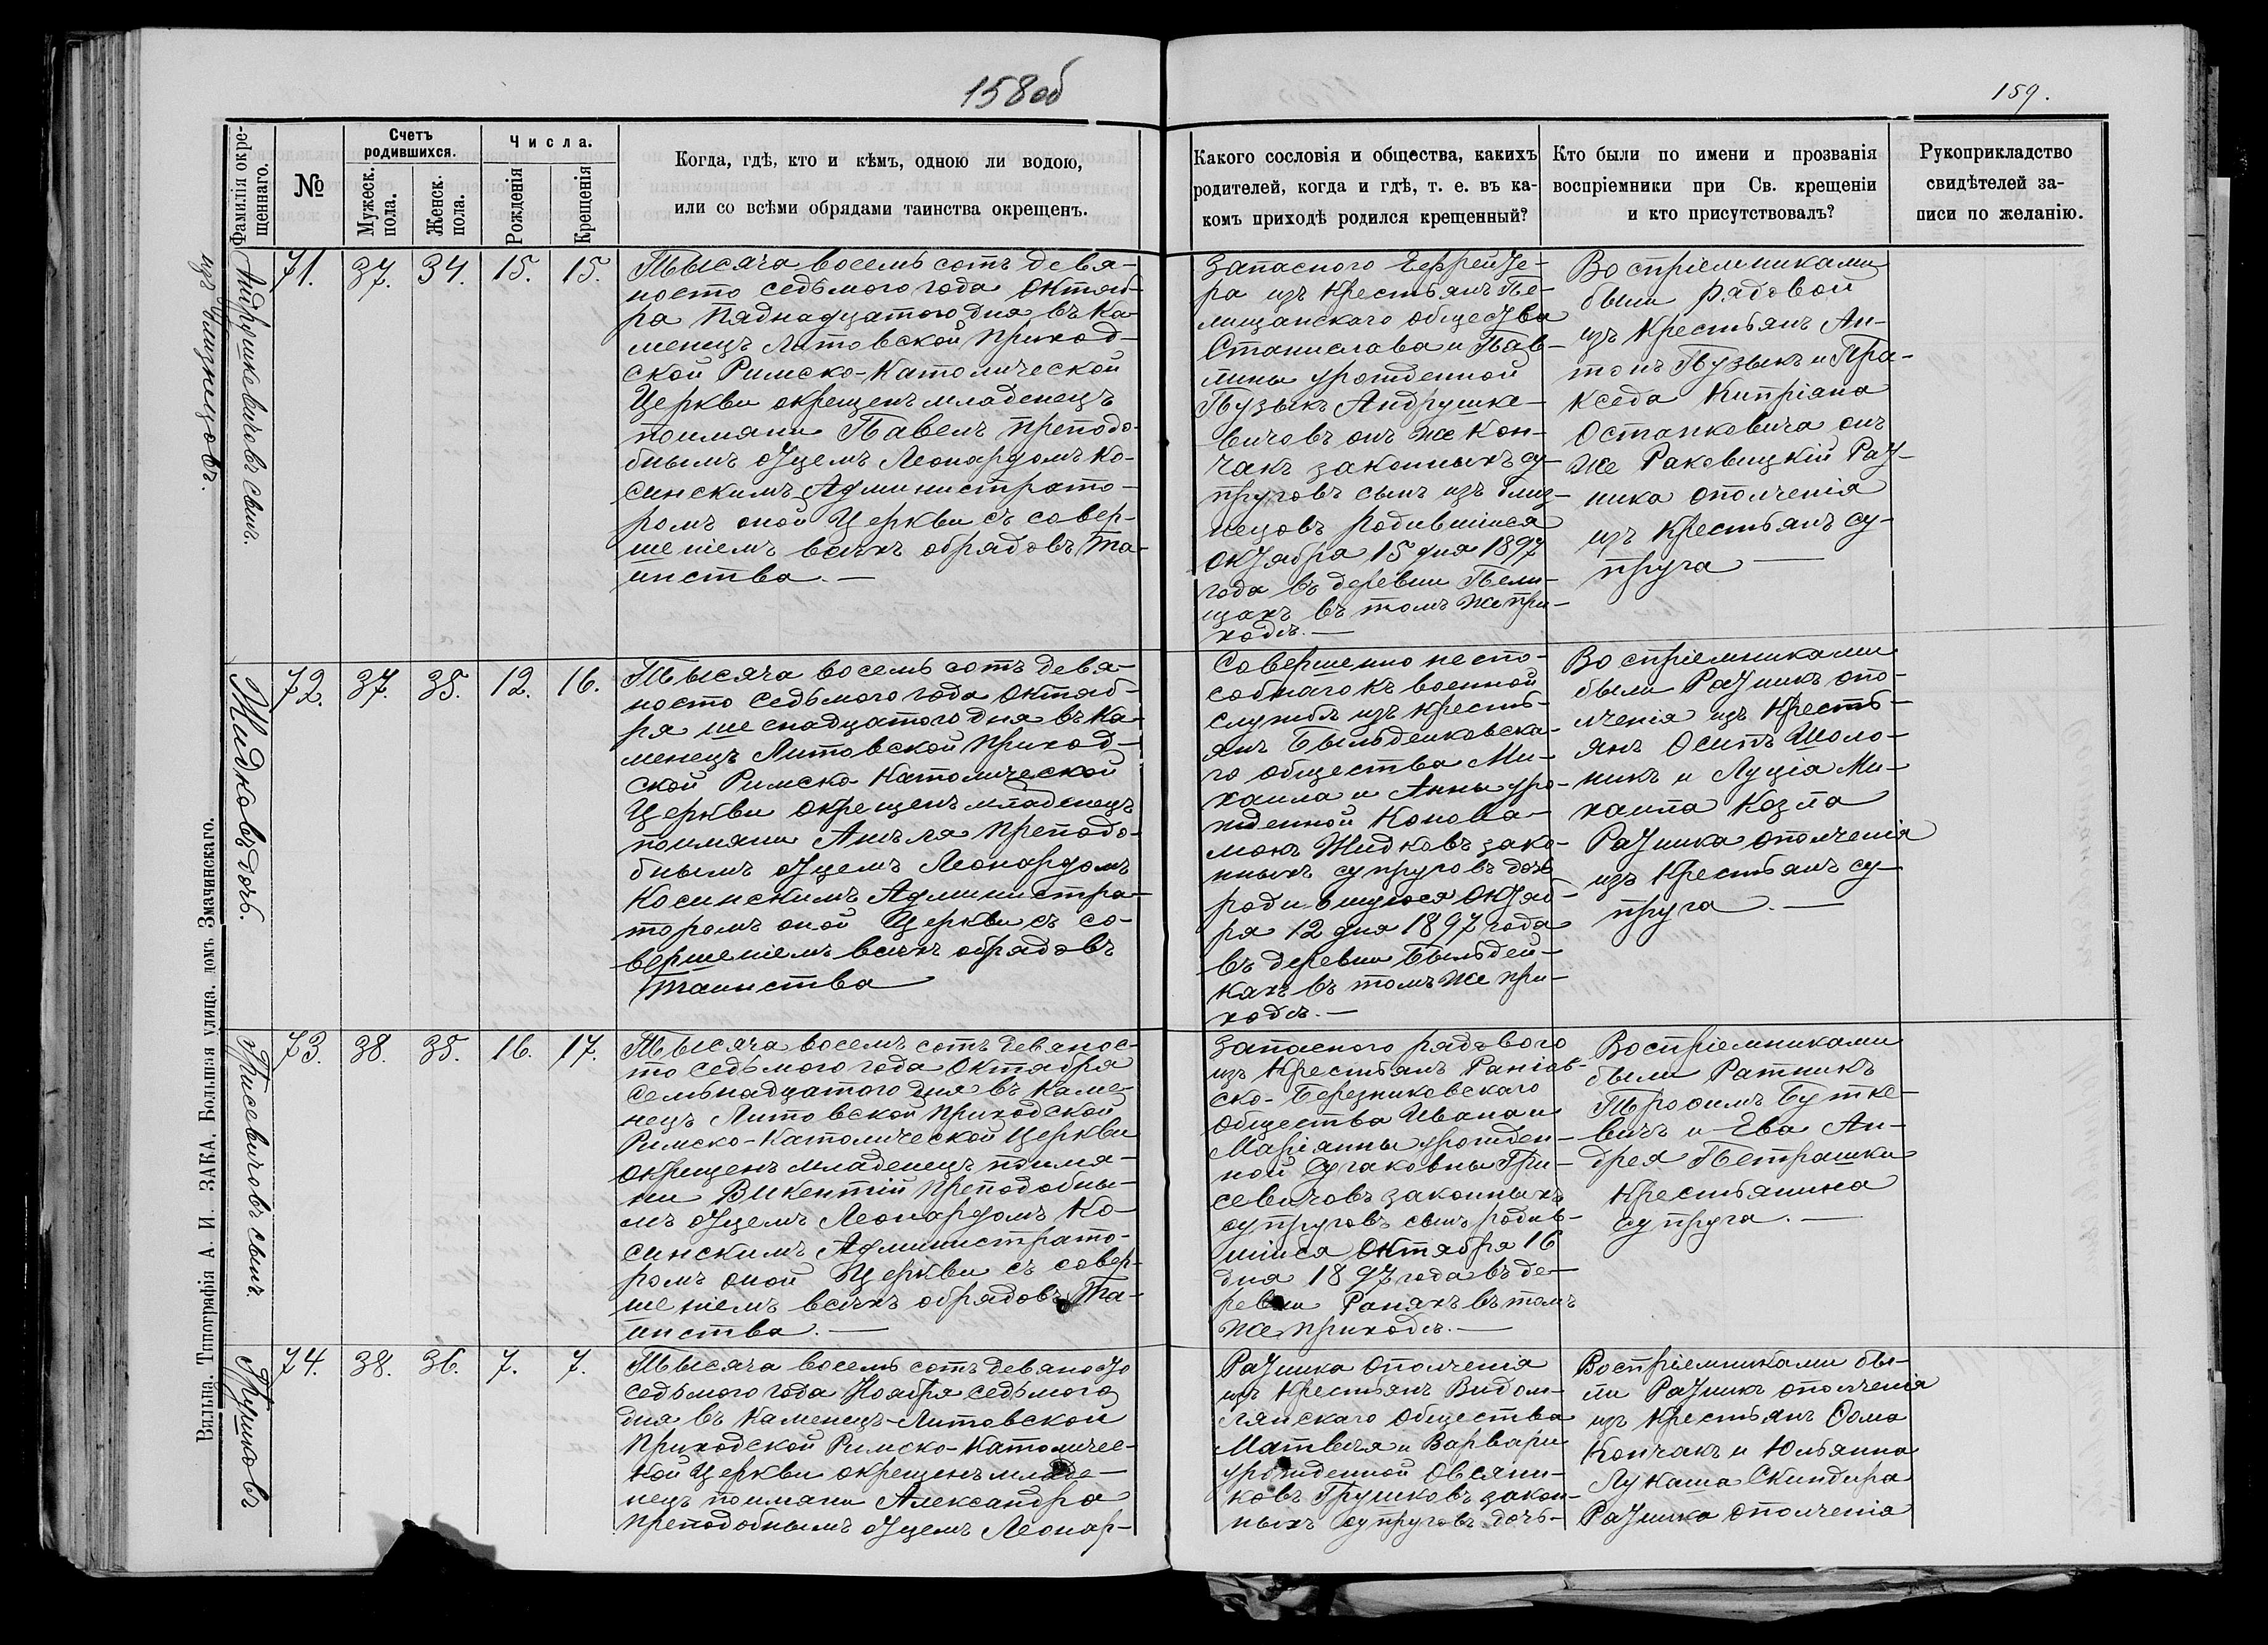 158об
159.
Фамилія окре-
щеннаго.
№
Счетъ
родившихся.
Мужеск.
пола.
Женск.
пола.
Числа.
Рожденія
Крещенія
Когда, гдѣ, кто и кѣмъ, одною ли водою,
или со всѣми обрядами таинства окрещенъ.
Какого сословія и общества, какихъ
родителей, когда и гдѣ, т. е. въ ка-
комъ приходѣ родился крещенный?
Кто были по имени и прозванія
воспріемники при Св. крещеніи
и кто присутствовалъ?
Рукоприкладство
свидѣтелей за-
писи по желанію.
Андрушкевичовъ сынъ.
изъ близнецовъ.
71.
37.
34.
15.
15.
Тысяча восемь сотъ девя-
носто седьмого года Октяб-
ра пяднадцатого дня въ Ка-
менецъ Литовской приход-
ской Римско-Католической
Церкви окрещенъ младенецъ
поимяни Павелъ преподо-
бнымъ отцемъ Леонардомъ Ко-
синскимъ Администрато-
ромъ оной Церкви съ совер-
шеніемъ всѣхъ обрядовъ та-
инства. —
Запасного Ефрейте-
ра изъ крестьянъ Пе-
лищанскаго общества
Станислава и Пав-
лины урожденной
Пузыкъ Андрушке-
вичовъ онъ же Кон-
чакъ законныхъ су-
пруговъ сынъ изъ близ-
нецовъ родившійся
октября 15 дня 1897
года въ деревни Пели-
щахъ въ томъ же при-
ходѣ. —
Воспріемниками
были рядовой
изъ крестьянъ Ан-
тонъ Пузыкъ и Пра-
кседа Кипріана
Останковича онъ
же Раковицкій Рат-
ника ополченія
изъ крестьянъ су-
пруга —
Жидковъ дочь.
72.
37.
35.
12.
16.
Тысяча восемь сотъ девя-
носто седьмого года октяб-
ря шеснадцатого дня въ Ка-
менецъ Литовской приход-
ской Римско-Католической
Церкви окрещенъ младенецъ
поимяни Анѣля преподо-
бнымъ отцемъ Леонардомъ
Косинскимъ Администра-
торомъ оной Церкви съ со-
вершеніемъ всѣхъ обрядовъ
таинства
Совершенно неспо-
собнаго къ военной
службѣ изъ кресть-
янъ Быльдейковска-
го общества Ми-
хаила и Анны уро-
жденной Конова-
люкъ Жидковъ зако-
нныхъ супруговъ дочь
родившуюся октяб-
ря 12 дня 1897 года
въ деревни Быльдей-
кахъ въ томъ же при-
ходѣ. —
Воспріемниками
были Ратникъ опо-
лченія изъ кресть-
янъ Осипъ Шоло-
никъ и Луція Ми-
хаила Козла
Ратника ополченія
изъ крестьянъ су-
пруга. —
Грисевичовъ сынъ.
73.
38.
35.
16.
17.
Тысяча восемь сотъ девянос-
то седьмого года Октября
семьнадцатого дня въ Каме-
нецъ Литовской приходской
Римско-Католической Церкви
окрещенъ младенецъ поимя-
ни Викентій преподобны-
мъ отцемъ Леонардомъ Ко-
синскимъ Администрато-
ромъ оной Церкви съ совер-
шеніемъ всѣхъ обрядовъ та-
инства. —
Запасного рядового
изъ крестьянъ
ско-Березниковскаго
общества Ивана и
Маріанны урожден-
ной Сугаковны Гри-
севичовъ законныхъ
супруговъ сынъ родив-
шійся Октября 16
дня 1897 года въ де-
ревни Ранахъ въ томъ
же приходѣ. —
Воспріемниками
были Ратникъ
Трофимъ Бутке-
вичъ и Ева Ан-
дрея Петрашки
крестьянина
супруга. —
Грушковъ
74.
38.
36.
7.
7.
Тысяча восемь сотъ девяносто
седьмого года Ноября седьмого
дня въ Каменецъ-Литовской
приходской Римско-Католичес-
кой Церкви окрещенъ младе-
нецъ поимяни Александра
преподобнымъ отцемъ Леонар-
Ратника ополченія
изъ крестьянъ Видом-
лянскаго общества
Матвѣя и Варвары
урожденной Овсяни-
ковъ Грушковъ закон-
ныхъ супруговъ дочь-
Воспріемниками бы-
ли Ратникъ ополченія
изъ крестьянъ Ѳома
Кончакъ и Юльянна
Лукаша Скиндира
Ратника ополченія
Вильна. Типографія А. И. ЗАКА. Большая улица, домъ Змачинскаго.